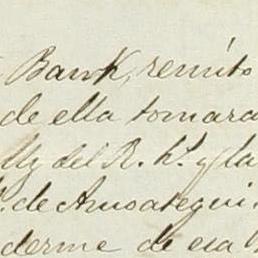 Bank, remito
de ella tomara
lly del R. h.º y la
de Amosategui.
derme de esa